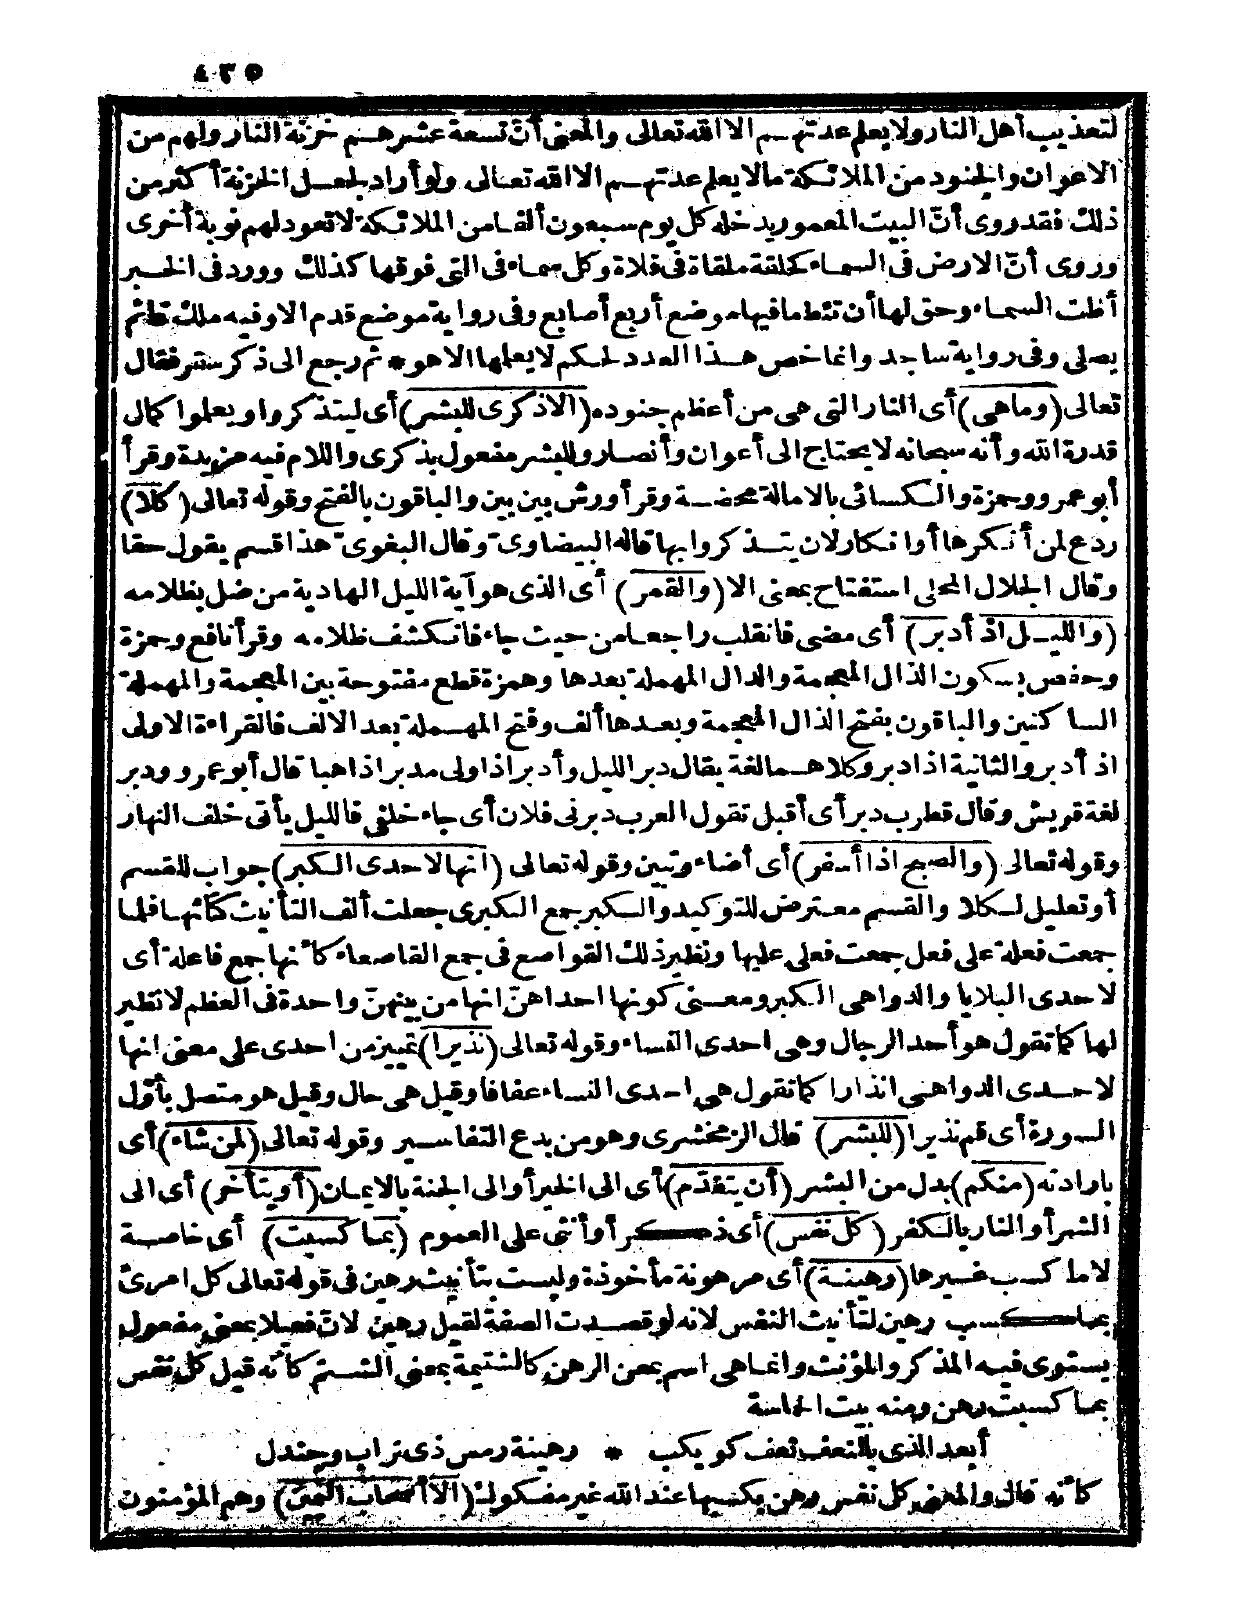 ٤٣٥
لتعذيب أهل النار ولا يعلم عدتهم الا الله تعالى والمعنى أنّ تسعة عشرهم خزنة النار ولهم من
الاعوان والجنود من الملائكة ما لا يعلم عدتهم الا الله تعالى ولو أراد لجعل الخزنة أكثر من
ذلك فقد روى أنّ البيت المعمور يدخله كل يوم سبعون ألفا من الملائكة لا تعود لهم نوبة أخرى
وروى أنّ الارض فى السماء كحلقة ملقاة فى فلاة وكل سماء فى التى فوقها كذلك وورد فى الخبر
أطت السماء وحق لها أن تئط ما فيها موضع أربع أصابع وفى رواية موضع قدم الا وفيه ملك قائم
يصلى وفى رواية ساجد وانما خص هذا العدد لحكم لا يعلمها الا هو * ثم رجع الى ذكر سقر فقال
تعالى (وما هى) أى النار التى هى من أعظم جنوده (الا ذكرى للبشر) أى ليتذكروا ويعلموا كمال
قدرة الله وأنه سبحانه لا يحتاج الى أعوان وأنصار وللبشر مفعول بذكرى واللام فيه مزيدة وقرأ
أبو عمرو وحمزة والكسائى بالامالة محضة وقرأ ورش بين بين والباقون بالفتح وقوله تعالى (كلا)
ردع لمن أنكرها أو انكار لان يتذكروا بها قاله البيضاوى وقال البغوى هذا قسم يقول حقا
وقال الجلال المحلى استفتاح بمعنى الا (والقمر) أى الذى هو آية الليل الهادية من ضل بظلامه
(والليل اذ أدبر) أى مضى فانقلب راجعا من حيث جاء فانكشف ظلامه وقرأ نافع وحمزة
وحفص بسكون الذال المعجمة والدال المهملة بعدها وهمزة قطع مفتوحة بين المعجمة والمهملة
الساكنين والباقون بفتح الذال المعجمة وبعدها ألف وفتح المهملة بعد الالف فالقراءة الاولى
اذ أدبر والثانية اذا دبر وكلاهما لغة يقال دبر الليل وأدبر اذا ولى مدبرا ذاهبا قال أبو عمرو ودبر
لغة قريش وقال قطرب دبر أى أقبل تقول العرب دبرنى فلان أى جاء خلفى فالليل يأتى خلف النهار
وقوله تعالى (والصبح اذا أسفر) أى أضاء وتبين وقوله تعالى (انها لاحدى الكبر) جواب للقسم
أو تعليل لكلا والقسم معترض للتوكيد والكبر جمع الكبرى جعلت ألف التأنيث كتائها فلما
جمعت فعلة على فعل جمعت فعلى عليها ونظير ذلك القواصع فى جمع القاصعاء كأنها جمع فاعلة أى
لاحدى البلايا والدواهى الكبر ومعنى كونها احداهنّ انها من بينهنّ واحدة فى العظم لا نظير
لها كما تقول هو أحد الرجال وهى احدى النساء وقوله تعالى (نذيرا) تمييز من احدى على معنى انها
لاحدى الدواهى انذارا كما تقول هى احدى النساء عفافا وقيل هى حال وقيل هو متصل بأوّل
السورة أى قم نذيرا (للبشر) قال الزمخشرى وهو من بدع التفاسير وقوله تعالى (لمن شاء) أى
بارادته (منكم) بدل من البشر (أن يتقدّم) أى الى الخير أو الى الجنة بالايمان (أو يتأخر) أى الى
الشر أو النار بالكفر (كل نفس) أى ذكر أو أنثى على العموم (بما كسبت) أى خاصة
لا ما كسب غيرها (رهينة) أى مرهونة مأخوذة وليست بتأنيث رهين فى قوله تعالى كل امرئ
بما كسب رهين لتأنيث النفس لانه لو قصدت الصفة لقيل رهين لانّ فعيلا بمعنى مفعول
يستوى فيه المذكر والمؤنث وانما هى اسم بمعنى الرهن كالشتيمة بمعنى الشتم كأنه قيل كل نفس
بما كسبت رهن ومنه بيت الحماسة
أبعد الذى بالنعف نعف كويكب * رهينة رمس ذى تراب وجندل
كأنه قال والمعنى كل نفس رهن بكسبها عند الله غير مفكوك (الا أصحاب اليمين) وهم المؤمنون